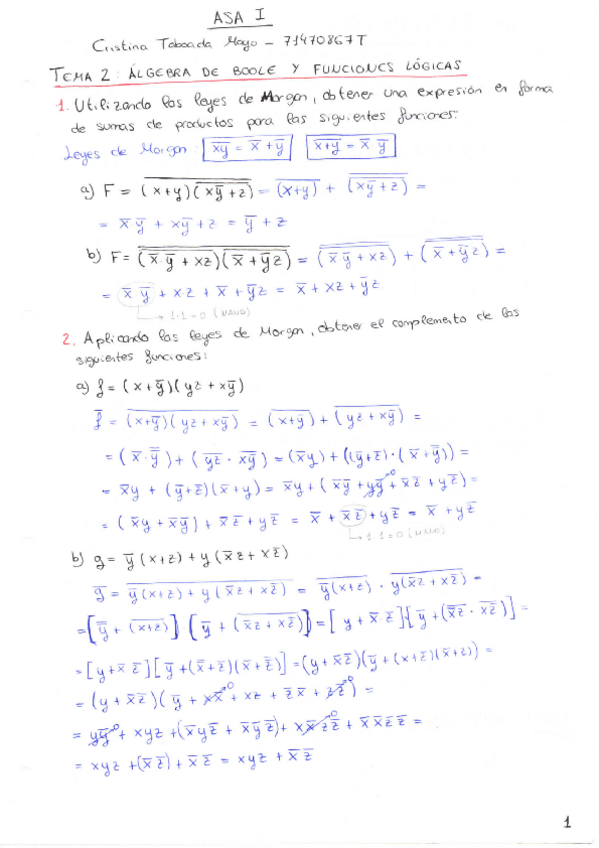 ASA I
Cristina Taboada Mayo – 71470867T
TEMA 2: ÁLGEBRA DE BOOLE Y FUNCIONES LÓGICAS
1. Utilizando las leyes de Morgan, obtener una expresión en forma
de sumas de productos para las siguientes funciones:
Leyes de Morgan: x̅y̅ = x̅ + y̅   x̅+̅y̅ = x̅ y̅
a) F = \overline{(x+y)(\overline{x\bar{y}+z})} = \overline{(x+y)} + \overline{\overline{(x\bar{y}+z)}} =
= x̅ y̅ + x y̅ + z = y̅ + z
b) F = \overline{\overline{(\bar{x}·\bar{y} + xz)}\overline{(\bar{x}+\bar{y}z)}} = \overline{\overline{(\bar{x}\bar{y}+xz)}} + \overline{\overline{(\bar{x}+\bar{y}z)}} =
= x̅ y̅ + x·z + x̅ + y̅z = x̅ + xz + y̅z
2. Aplicando las leyes de Morgan, obtener el complemento de las
siguientes funciones:
a) f = (x + y̅)(yz + xy̅)
\bar{f} = \overline{(x+\bar{y})(yz + x\bar{y})} = \overline{(x+\bar{y})} + \overline{(yz + x\bar{y})} =
= (\bar{x}·\bar{\bar{y}}) + (\overline{yz} · \overline{x\bar{y}}) = (x̅y) + ((y̅+z̅)·(x̅+\bar{\bar{y}})) =
= x̅y + (y̅+z̅)(x̅+y) = x̅y + (x̅y̅ + yy̅⁰ + x̅z̅ + yz̅) =
= (x̅y + x̅y̅) + x̅z̅ + yz̅ = x̅ + x̅z̅ + yz̅ = x̅ + yz̅
b) g = y̅(x+z) + y(x̅z + xz̅)
\bar{g} = \overline{\bar{y}(x+z) + y(\bar{x}z + x\bar{z})} = \overline{\bar{y}(x+z)} · \overline{y(\bar{x}z + x\bar{z})} =
= [\bar{\bar{y}} + \overline{(x+z)}] [\bar{y} + \overline{(\bar{x}z + x\bar{z})}] = [y + x̅·z̅][y̅ + (\overline{\bar{x}z} · \overline{x\bar{z}})] =
= [y + x̅ z̅][y̅ + (\bar{\bar{x}}+z̅)(x̅+\bar{\bar{z}})] = (y + x̅z̅)(y̅ + (x+z̅)(x̅+z)) =
= (y + x̅z̅)(y̅ + xx̅⁰ + xz + z̅x̅ + zz̅⁰) =
= yy̅⁰ + xyz + (x̅yz̅ + x̅y̅z̅) + xx̅zz̅⁰ + x̅x̅z̅z̅ =
= xyz + (x̅z̅) + x̅z̅ = xyz + x̅ z̅
1